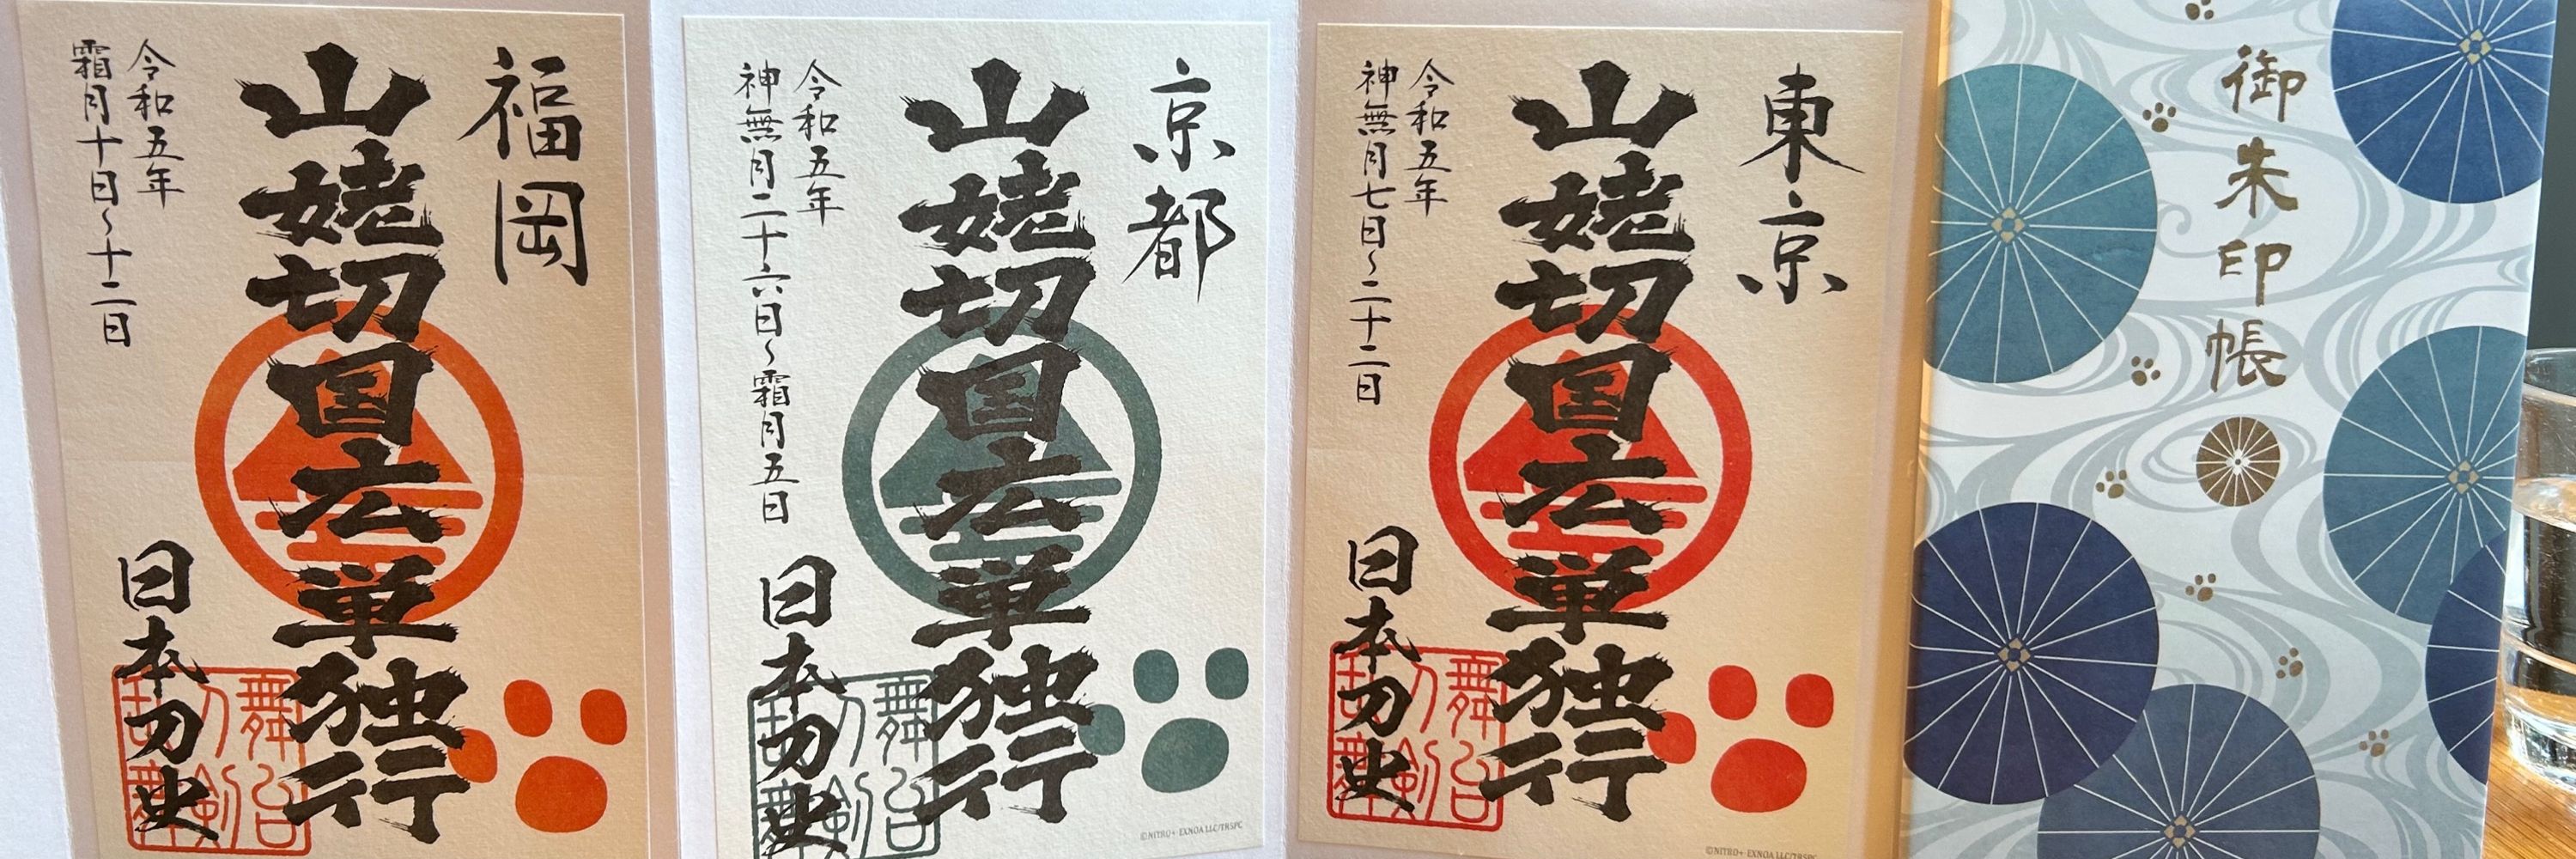 福岡
山姥切国広単独行
令和五年
霜月十日〜十二日
日本刀史
京都
山姥切国広単独行
令和五年
神無月二十六日〜霜月五日
日本刀史
©NITRO+・EXNOA LLC/TRSPC
東京
山姥切国広単独行
令和五年
神無月七日〜二十二日
日本刀史
©NITRO+・EXNOA LLC/TRSPC
御朱印帳